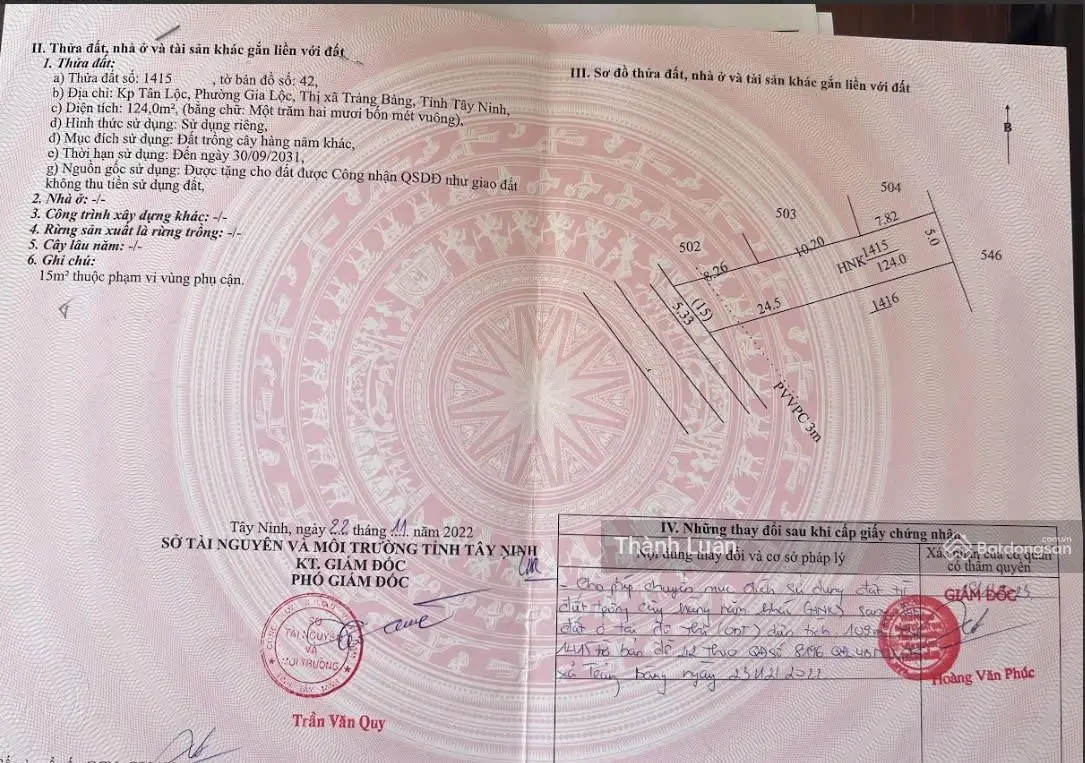 II. Thửa đất, nhà ở và tài sản khác gắn liền với đất
1. Thửa đất:
a) Thửa đất số: 1415 , tờ bản đồ số: 42,
b) Địa chỉ: Kp Tân Lộc, Phường Gia Lộc, Thị xã Trảng Bàng, Tỉnh Tây Ninh,
c) Diện tích: 124,0m², (bằng chữ: Một trăm hai mươi bốn mét vuông),
d) Hình thức sử dụng: Sử dụng riêng,
đ) Mục đích sử dụng: Đất trồng cây hàng năm khác,
e) Thời hạn sử dụng: Đến ngày 30/09/2031,
g) Nguồn gốc sử dụng: Được tặng cho đất được Công nhận QSDĐ như giao đất
không thu tiền sử dụng đất,
2. Nhà ở: -/-
3. Công trình xây dựng khác: -/-
4. Rừng sản xuất là rừng trồng: -/-
5. Cây lâu năm: -/-
6. Ghi chú:
15m² thuộc phạm vi vùng phụ cận.
III. Sơ đồ thửa đất, nhà ở và tài sản khác gắn liền với đất
B
504
503
7.82
502
10.20
5.0
546
8.26
HNK 1415
124.0
(15)
5.33
24.5
1416
PVVPC 3m
Tây Ninh, ngày 22 tháng 11 năm 2022
SỞ TÀI NGUYÊN VÀ MÔI TRƯỜNG TỈNH TÂY NINH
KT. GIÁM ĐỐC
PHÓ GIÁM ĐỐC
SỞ
TÀI NGUYÊN
VÀ
MÔI TRƯỜNG
Trần Văn Quy
IV. Những thay đổi sau khi cấp giấy chứng nhận
Nội dung thay đổi và cơ sở pháp lý
Xác nhận của cơ quan
có thẩm quyền
Thành Luân
Batdongsan
.com.vn
- Cho phép chuyển mục đích sử dụng đất từ
đất trồng cây hàng năm khác (HNK) sang
đất ở tại đô thị (ODT) diện tích 109m
1415 tờ bản đồ 42 theo QĐ số 8196
xã Trảng Bàng ngày 23/12/2022
GIÁM ĐỐC
Hoàng Văn Phúc